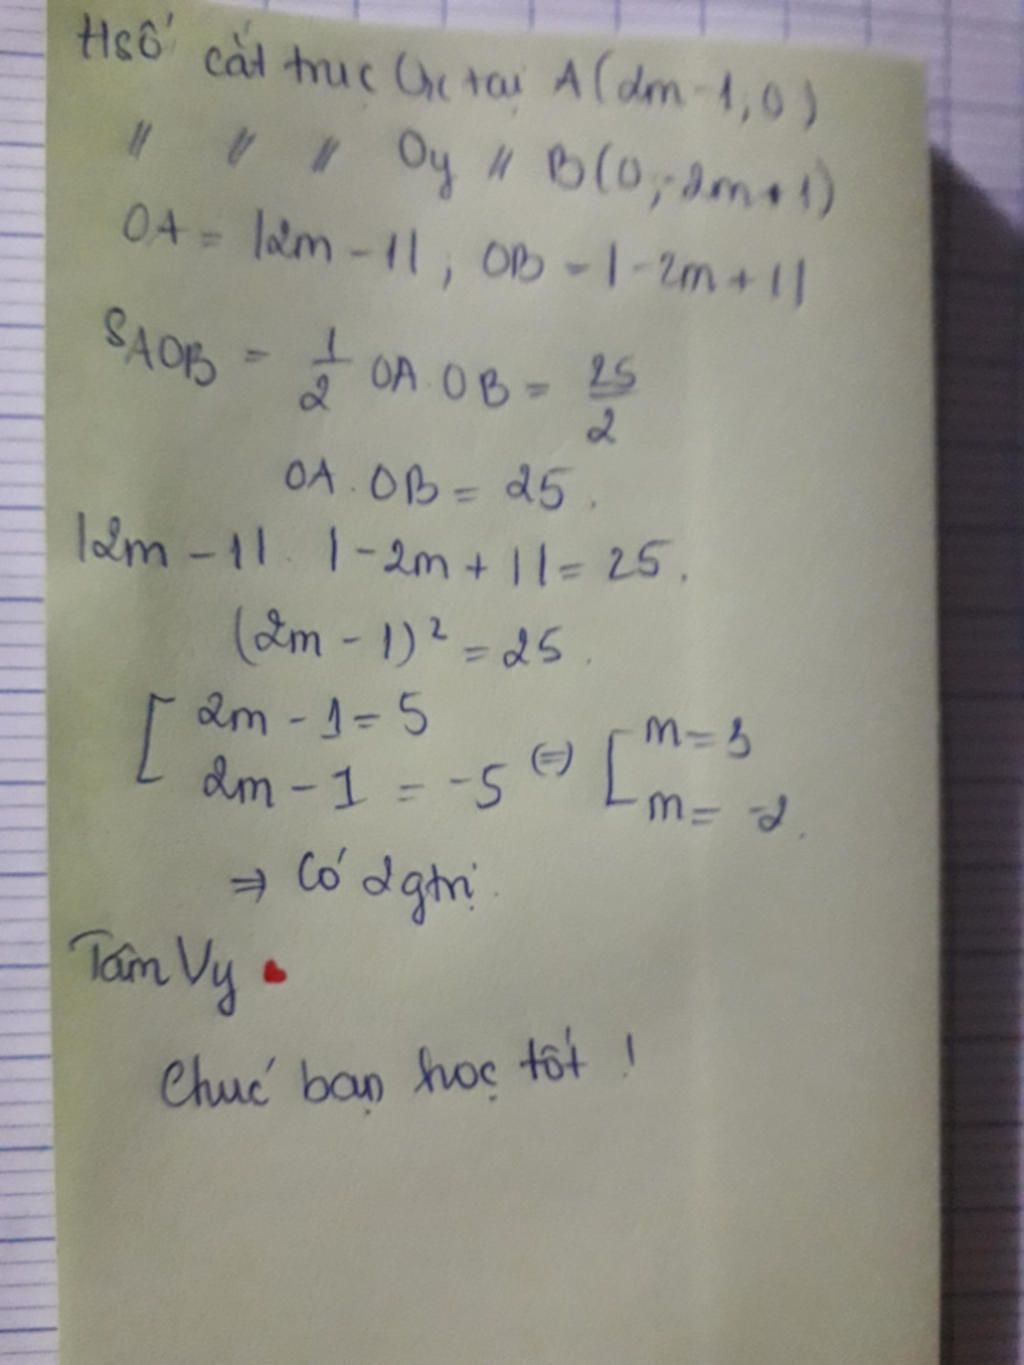 Hsố cắt trục Ox tại A(2m-1,0)
〃 〃 〃 Oy 〃 B(0,-2m+1)
OA = |2m-1| ; OB = |-2m+1|
S_AOB = 1/2 OA.OB = 25/2
OA.OB = 25.
|2m-1|.|-2m+1| = 25.
(2m-1)² = 25.
[ 2m-1=5
2m-1 = -5 ⇔ [ m=3
m= -2.
⇒ Có 2 gtrị.
Tâm Vy
Chúc bạn học tốt !